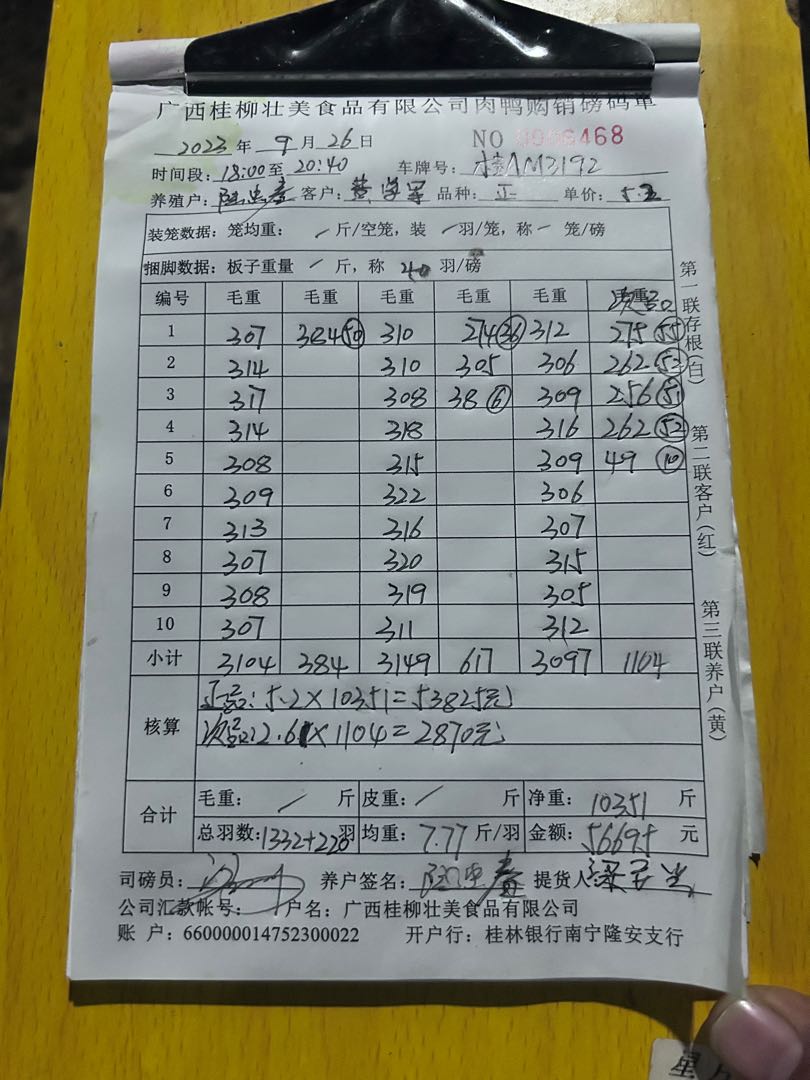 广西桂柳壮美食品有限公司肉鸭购销磅码单
2023 年 9 月 26 日 NO 0006468
时间段: 18:00至 20:40 车牌号: 桂AM3192
养殖户: 客户: 黄学军 品种: 正 单价: 5.2
装笼数据: 笼均重: / 斤/空笼, 装 / 羽/笼, 称 / 笼/磅
捆脚数据: 板子重量 / 斤, 称 40 羽/磅
编号 毛重 毛重 毛重 毛重 毛重
1 307 384 50 310 274 36 312 275 55
2 314 310 305 306 262 52
3 317 308 38 6 309 256 51
4 314 318 316 262 52
5 308 315 309 49 10
6 309 322 306
7 313 316 307
8 307 320 315
9 308 319 305
10 307 311 312
小计 3104 384 3149 617 3097 1104
核算 正品: 5.2×10351=53825元
次品: 2.6×1104=2870元
合计 毛重: / 斤 皮重: / 斤 净重: 10351 斤
总羽数: 1332+220羽 均重: 7.77 斤/羽 金额: 56695 元
司磅员: 养户签名: 提货人
公司汇款帐号: 户名: 广西桂柳壮美食品有限公司
账 户: 660000014752300022 开户行: 桂林银行南宁隆安支行
第一联存根(白)
第二联客户(红)
第三联养户(黄)
星